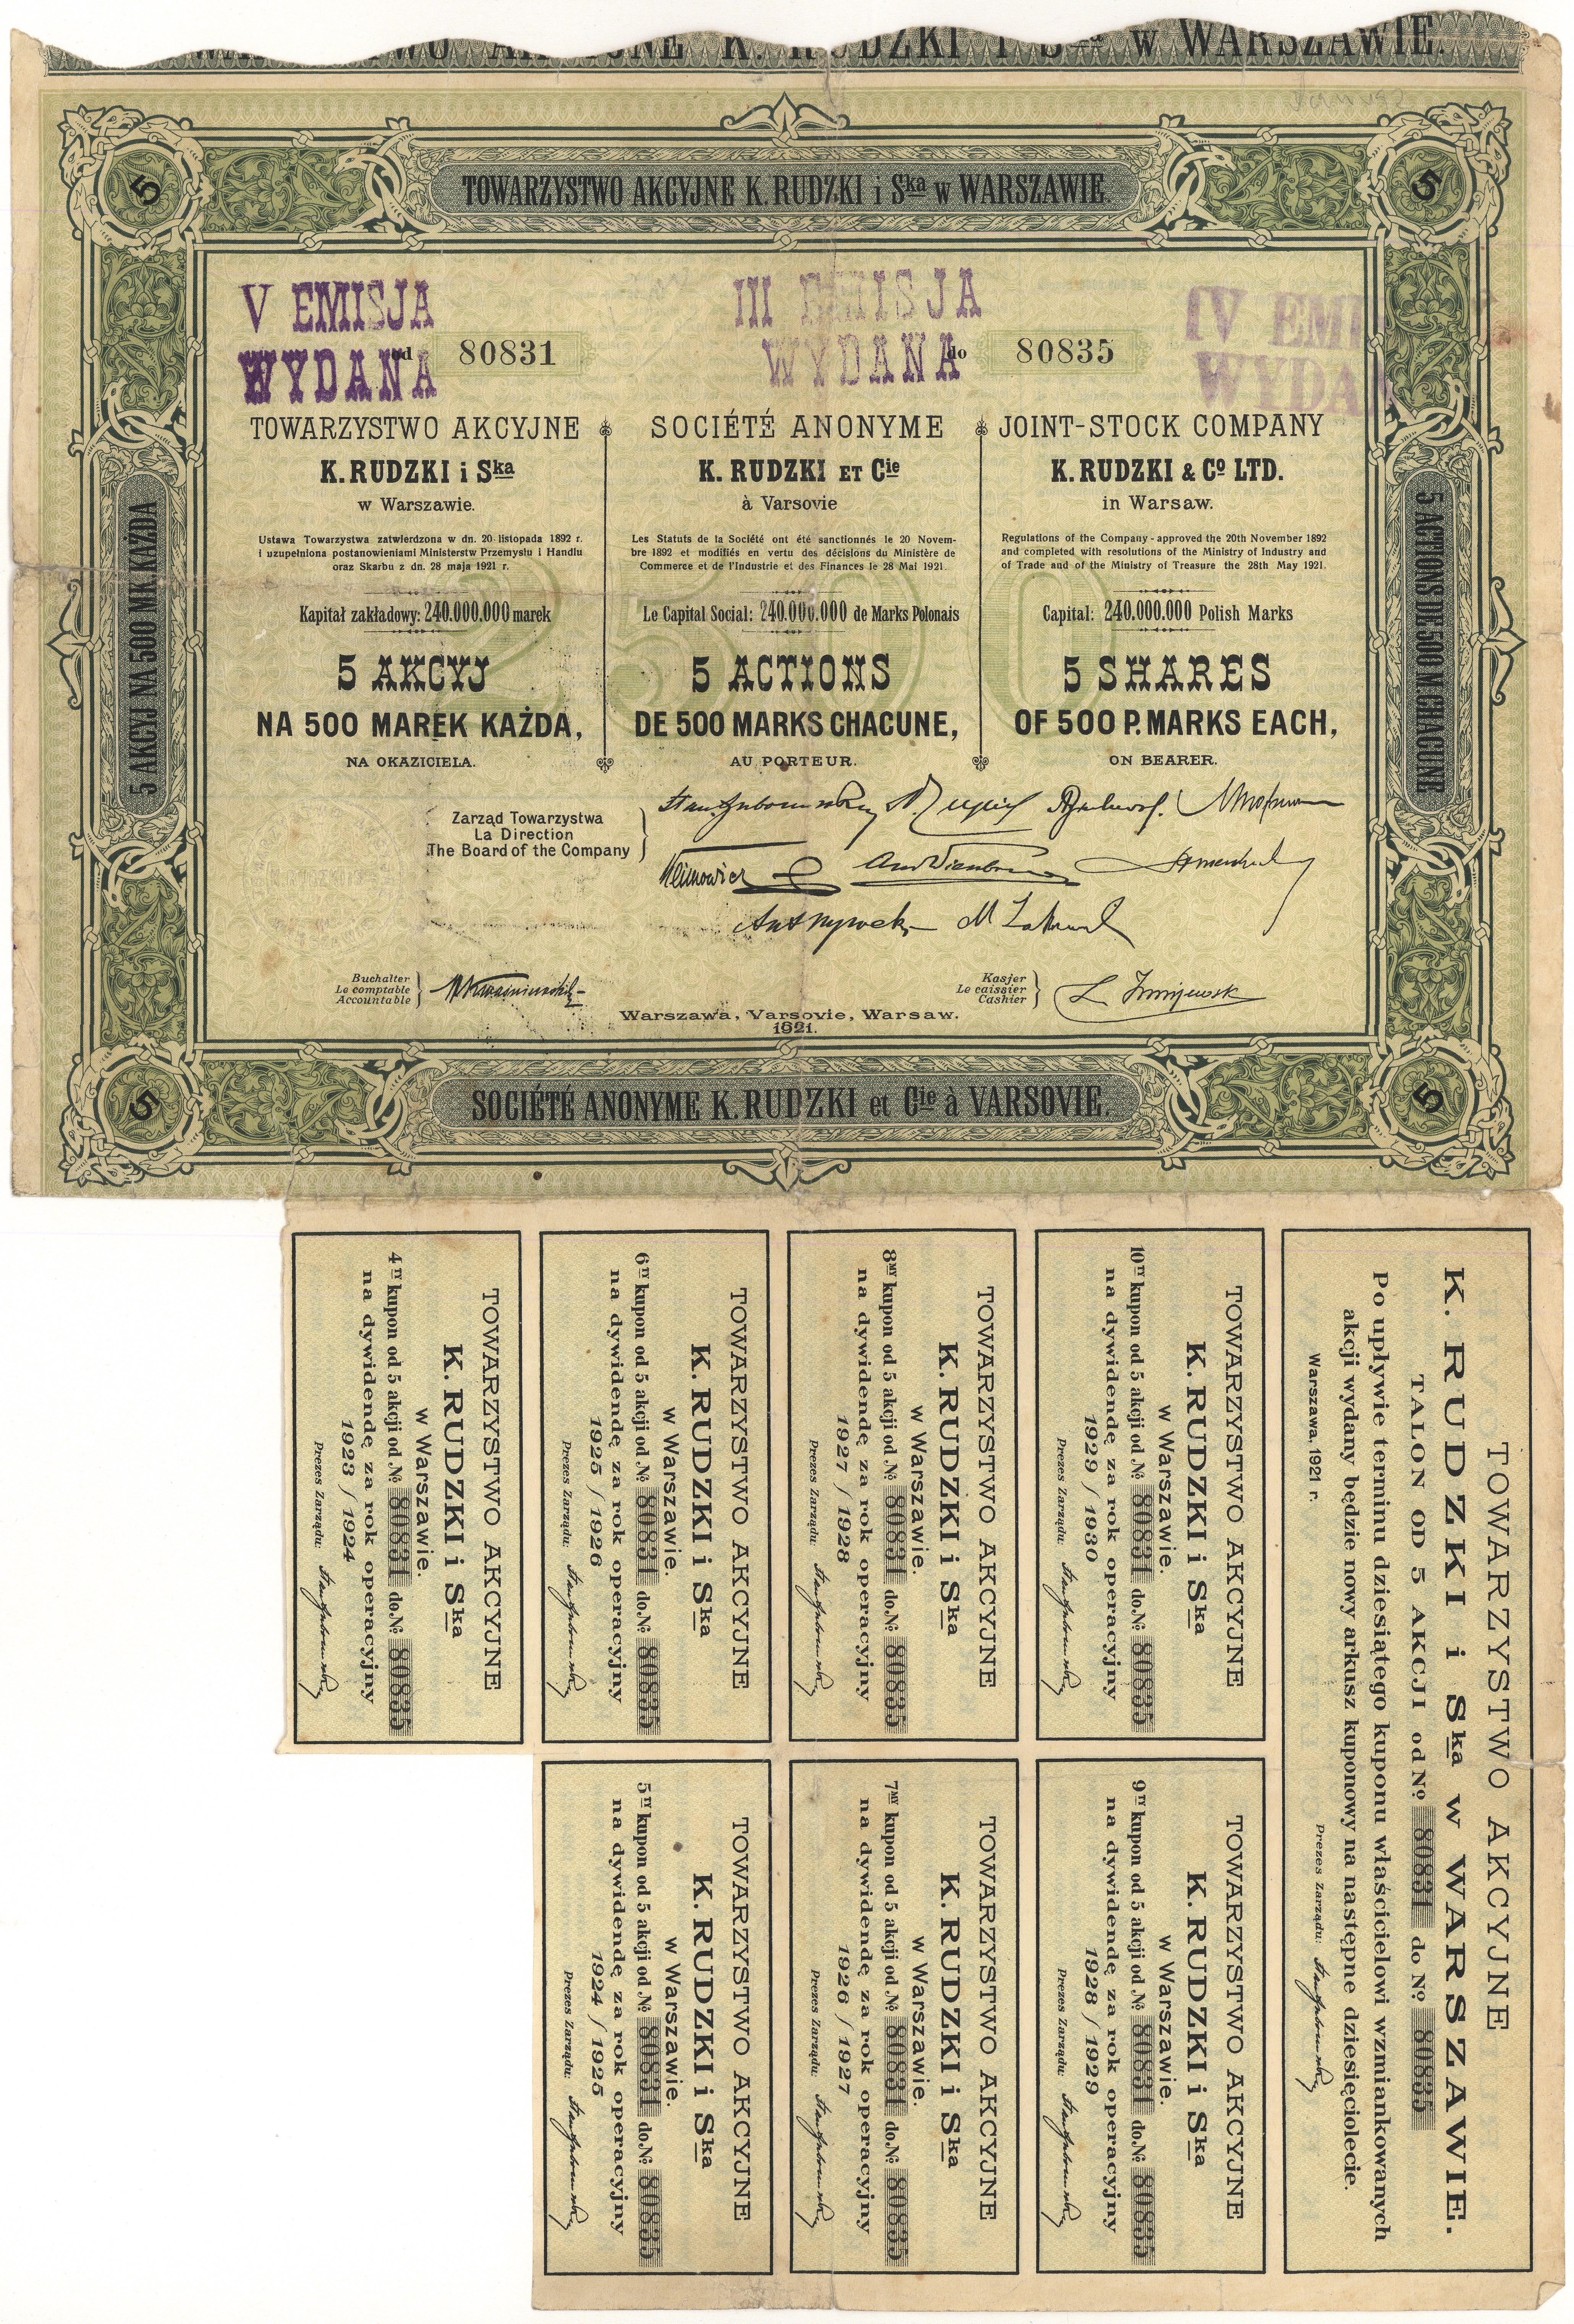 TOWARZYSTWO AKCYJNE K. RUDZKI i Ska w WARSZAWIE.
5
TOWARZYSTWO AKCYJNE K. RUDZKI i Ska w WARSZAWIE.
5
V EMISJA
WYDANA
III EMISJA
WYDANA
IV EMI
WYDA
od 80831
do 80835
TOWARZYSTWO AKCYJNE
K. RUDZKI i Ska
w Warszawie.
Ustawa Towarzystwa zatwierdzona w dn. 20 listopada 1892 r.
i uzupełniona postanowieniami Ministerstw Przemysłu i Handlu
oraz Skarbu z dn. 28 maja 1921 r.
Kapitał zakładowy: 240.000.000 marek
5 AKCYJ
NA 500 MAREK KAŻDA,
NA OKAZICIELA.
SOCIÉTÉ ANONYME
K. RUDZKI ET Cie
à Varsovie
Les Statuts de la Société ont été sanctionnés le 20 Novem-
bre 1892 et modifiés en vertu des décisions du Ministère de
Commerce et de l'Industrie et des Finances le 28 Mai 1921.
Le Capital Social: 240.000.000 de Marks Polonais
5 ACTIONS
DE 500 MARKS CHACUNE,
AU PORTEUR.
JOINT-STOCK COMPANY
K. RUDZKI & Co LTD.
in Warsaw.
Regulations of the Company - approved the 20th November 1892
and completed with resolutions of the Ministry of Industry and
of Trade and of the Ministry of Treasure the 28th May 1921.
Capital: 240.000.000 Polish Marks
5 SHARES
OF 500 P. MARKS EACH,
ON BEARER.
2500
5 AKCYJ NA 500 MK. KAŻDA
5 ACTIONS DE 500 M. CHACUNE
Zarząd Towarzystwa
La Direction
The Board of the Company
Buchalter
Le comptable
Accountable
Kasjer
Le caissier
Cashier
Warszawa, Varsovie, Warsaw.
1921.
5
SOCIÉTÉ ANONYME K. RUDZKI et Cie à VARSOVIE.
5
TOWARZYSTWO AKCYJNE
K. RUDZKI i Ska
w Warszawie.
4TY kupon od 5 akcji od № 80831 do № 80835
na dywidendę za rok operacyjny
1923 / 1924
Prezes Zarządu:
TOWARZYSTWO AKCYJNE
K. RUDZKI i Ska
w Warszawie.
6TY kupon od 5 akcji od № 80831 do № 80835
na dywidendę za rok operacyjny
1925 / 1926
Prezes Zarządu:
TOWARZYSTWO AKCYJNE
K. RUDZKI i Ska
w Warszawie.
8MY kupon od 5 akcji od № 80831 do № 80835
na dywidendę za rok operacyjny
1927 / 1928
Prezes Zarządu:
TOWARZYSTWO AKCYJNE
K. RUDZKI i Ska
w Warszawie.
10TY kupon od 5 akcji od № 80831 do № 80835
na dywidendę za rok operacyjny
1929 / 1930
Prezes Zarządu:
TOWARZYSTWO AKCYJNE
K. RUDZKI i Ska w WARSZAWIE.
TALON OD 5 AKCJI od № 80831 do № 80835
Po upływie terminu dziesiątego kuponu właścicielowi wzmiankowanych
akcji wydany będzie nowy arkusz kuponowy na następne dziesięciolecie.
Warszawa, 1921 r.
Prezes Zarządu:
TOWARZYSTWO AKCYJNE
K. RUDZKI i Ska
w Warszawie.
5TY kupon od 5 akcji od № 80831 do № 80835
na dywidendę za rok operacyjny
1924 / 1925
Prezes Zarządu:
TOWARZYSTWO AKCYJNE
K. RUDZKI i Ska
w Warszawie.
7MY kupon od 5 akcji od № 80831 do № 80835
na dywidendę za rok operacyjny
1926 / 1927
Prezes Zarządu:
TOWARZYSTWO AKCYJNE
K. RUDZKI i Ska
w Warszawie.
9TY kupon od 5 akcji od № 80831 do № 80835
na dywidendę za rok operacyjny
1928 / 1929
Prezes Zarządu: